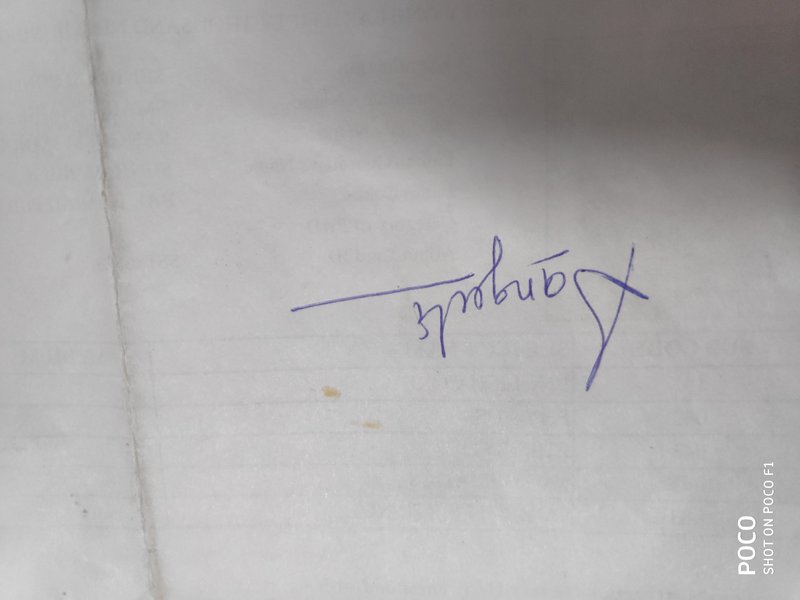 Sangoli
POCO
SHOT ON POCO F1